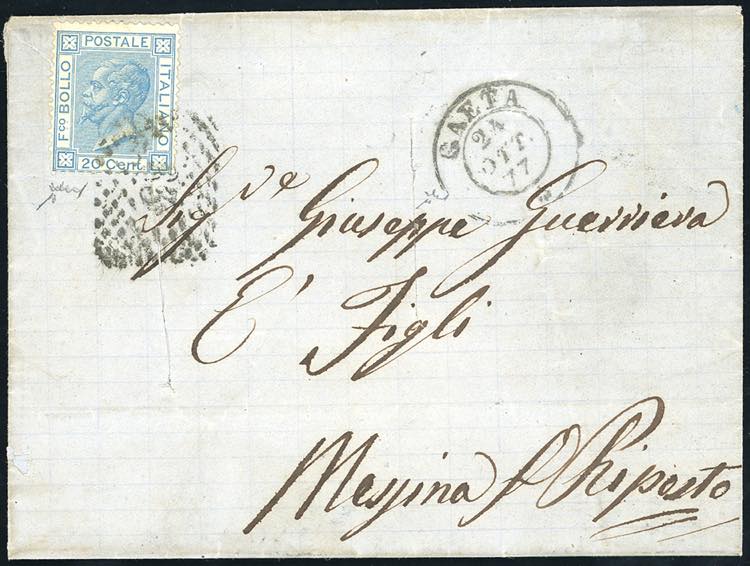 POSTALE
ITALIANO
Fco BOLLO
20 Cent
GAETA
24
OTT.
77
Sig.de Giuseppe Guerriera
E' Figli
Messina p Riposto